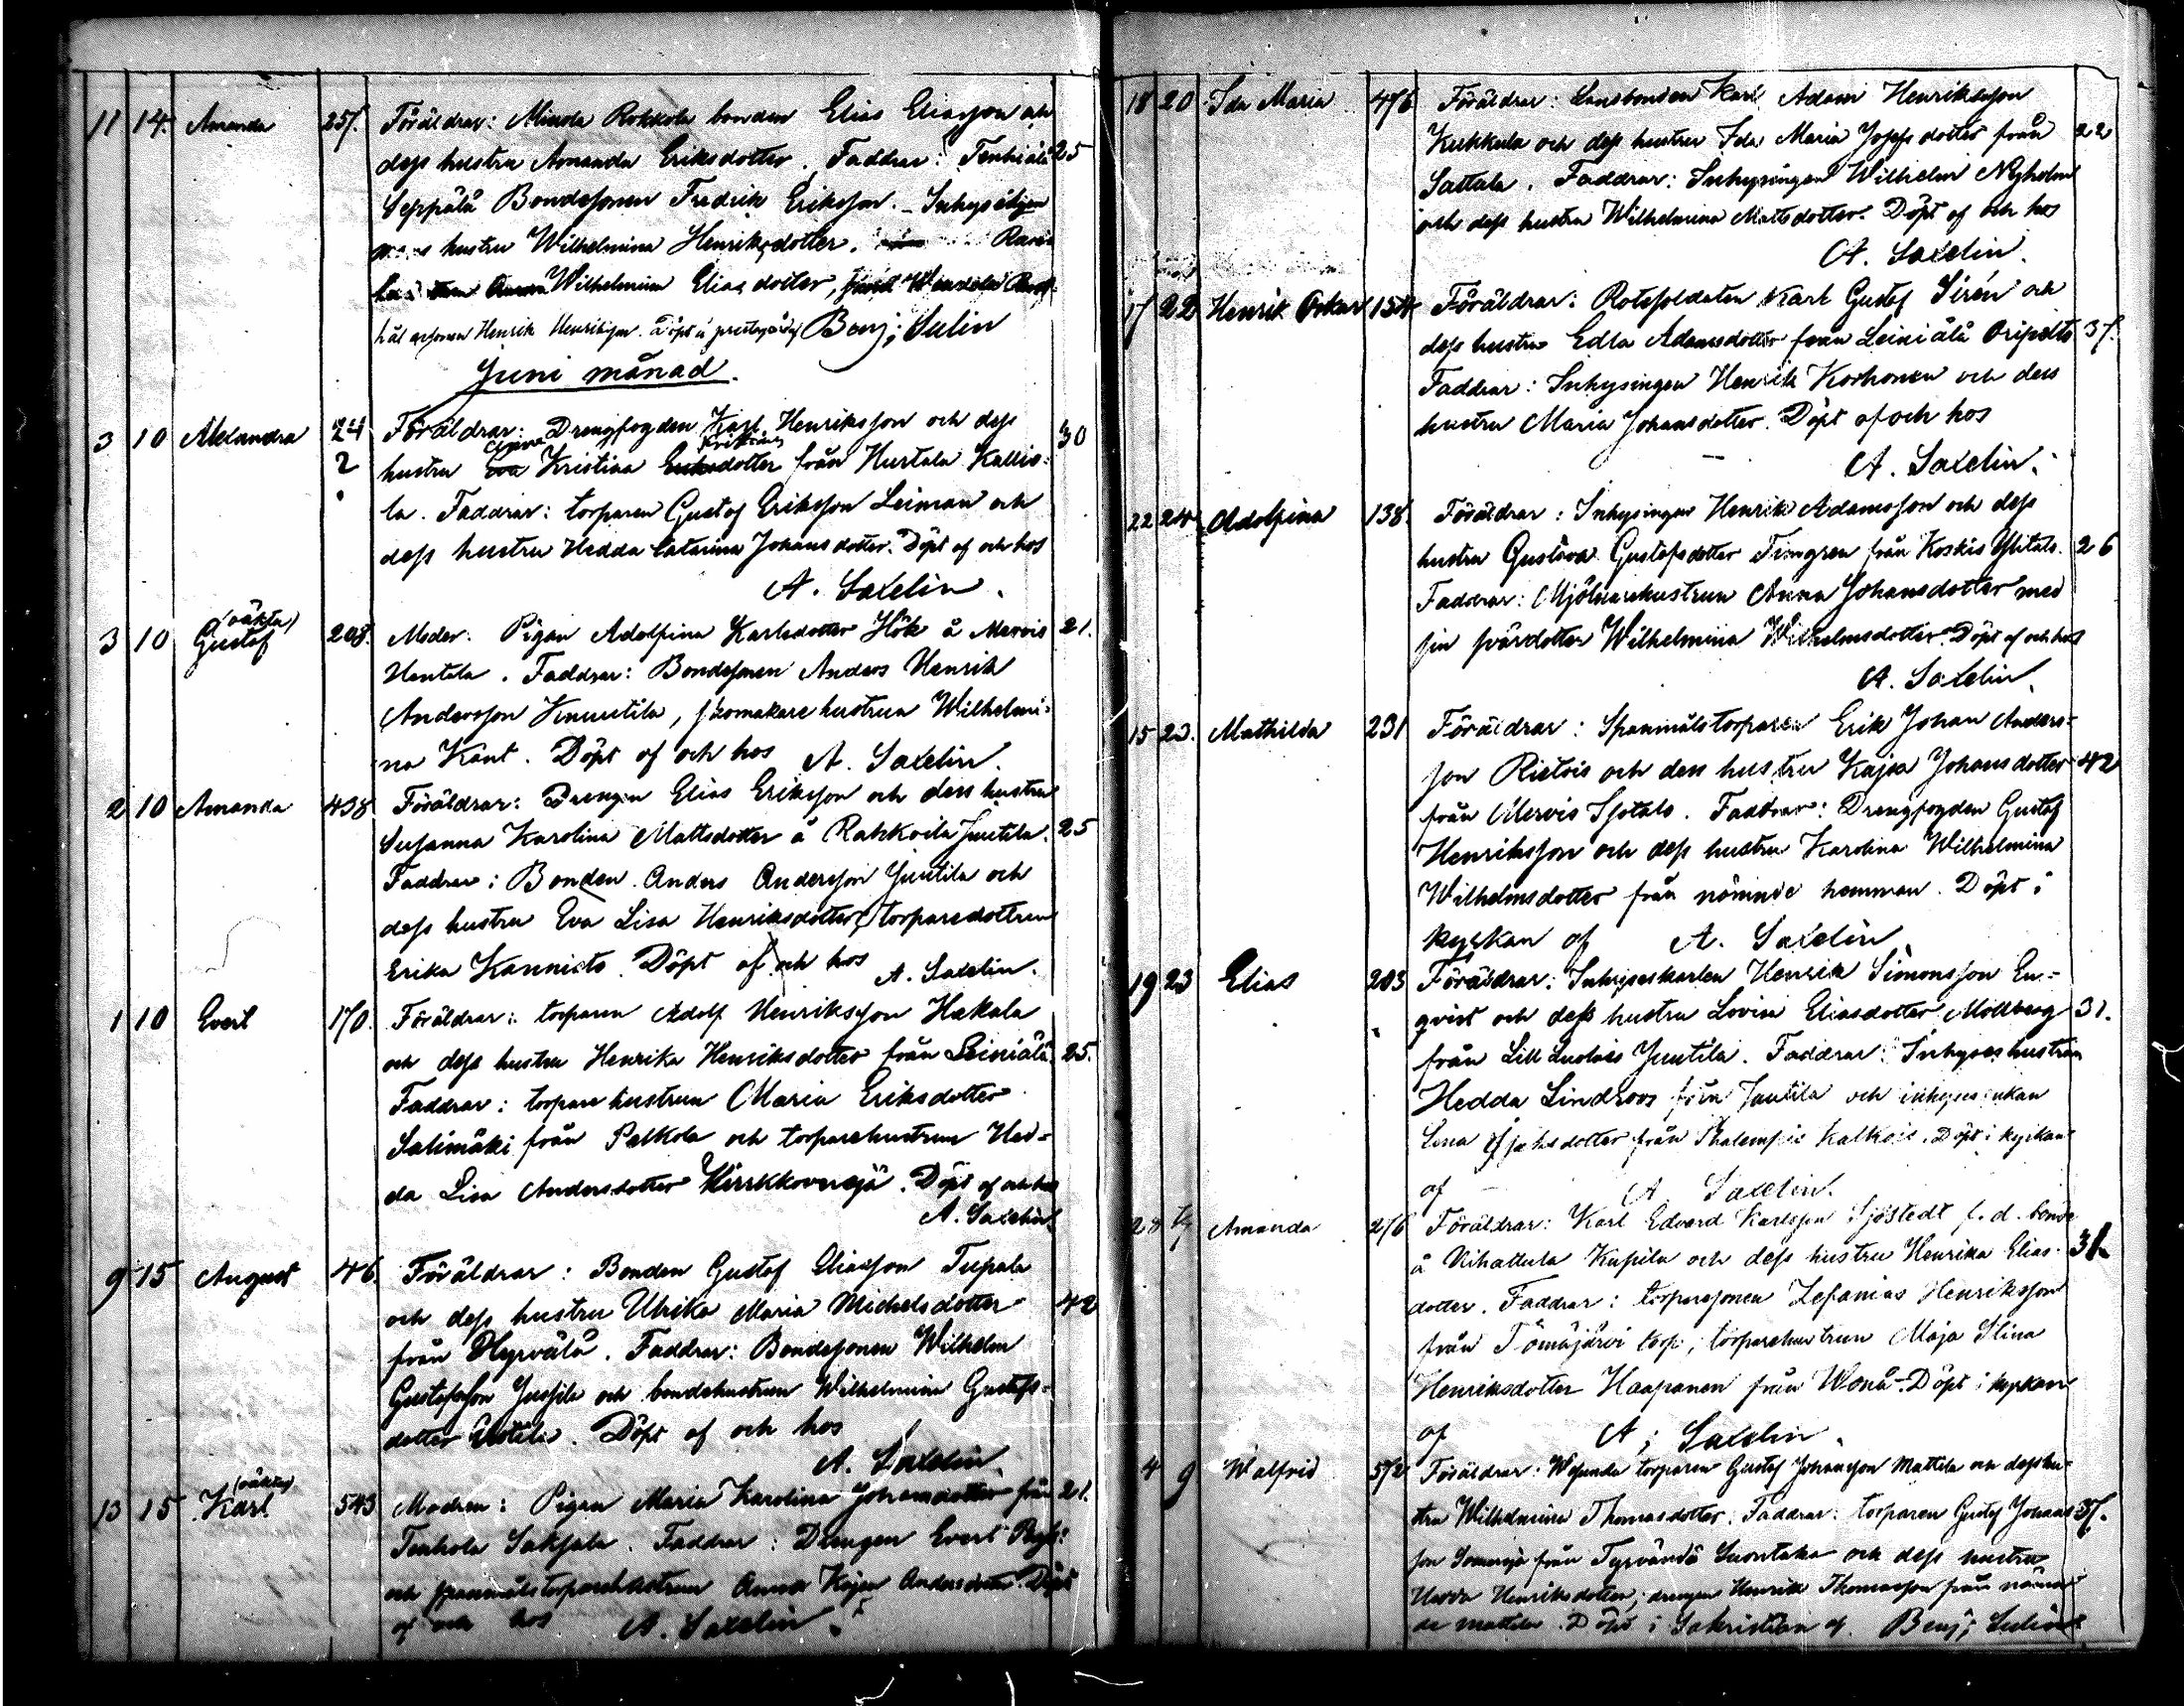 11 14. Amanda 257. Föräldrar: Minda Rokkola bonden Elias Eliasson och
dess hustru Amanda Eriksdotter. Faddrar: Tenhiälä 25
Seppälä Bondesonen Fredrik Eriksson. - Inhyses
hustru Wilhelmina Henriksdotter.
Wilhelmina Elias dotter,
Henrik Henriksson. Döpt i prestegården Benj; Sulin
Juni månad.
3 10 Alexandra 24 Föräldrar: Drengfogden Karl Henriksson och dess 30
2 hustru Eva Kristina dotter från Hurtala Kallio-
la. Faddrar: torparen Gustaf Eriksson Leiman och
dess hustru Hedda Catarina Johansdotter. Döpt af och hos
A. Saxelin.
(oäkta)
3 10 Gustaf 208. Moder: Pigan Adolfina Karlsdotter Hök å Mervis 21.
Hentela. Faddrar: Bondesonen Anders Henrik
Andersson Knuutila, skomakare hustrun Wilhelmi-
na Kant. Döpt af och hos A. Saxelin.
2 10 Amanda 438 Föräldrar: Drengen Elias Eriksson och dess hustru
Susanna Karolina Mattsdotter å Rahkoila Juutila. 25
Faddrar: Bonden Anders Andersson Juutila och
dess hustru Eva Lisa Henriksdotter, torparedottren
Erika Kannisto. Döpt af och hos A. Saxelin.
1 10 Evert 170. Föräldrar: torparen Adolf Henriksson Hakala
och dess hustru Henrika Henriksdotter från Leiniälä. 25.
Faddrar: torpare hustrun Maria Eriksdotter
Salimäki från Pelkola och torparehustrun Hed-
da Lisa Andersdotter Döpt af och hos
A. Saxelin.
9 15 August 46. Föräldrar: Bonden Gustaf Eliasson Tupala
och dess hustru Ulrika Maria Michelsdotter 42
från Hyrvälä. Faddrar: Bondesonen Wilhelm
Gustafsson Jussila och bondehustrun Wilhelmina Gustafs-
dotter Döpt af och hos
A. Saxelin.
(oäkta)
13 15 Karl 543 Modren: Pigan Maria Karolina Johansdotter från 21.
Tenhola Sakjala. Faddrar: Drengen Evert
och spanmålstorparehustrun Anna Kajsa Andersdotter. Döpt
af och hos A. Saxelin.
18 20 Ida Maria 476 Föräldrar: Landbonden Karl Adam Henriksson
Kukkula och dess hustru Ida Maria Josefsdotter från 22
Sattula. Faddrar: Inhysingen Wilhelm Nyholm
och dess hustru Wilhelmina Mattsdotter. Döpt af och hos
A. Saxelin.
17 22 Henrik Oskar 154 Föräldrar: Rotesoldaten Karl Gustaf Sirén och
dess hustru Edla Adamsdotter från Leiniälä 37.
Faddrar: Inhysingen Henrik Korhonen och dess
hustru Maria Johansdotter. Döpt af och hos
A. Saxelin.
22 24 Adolfina 138. Föräldrar: Inhysingen Henrik Adamsson och dess
hustru Gustava Gustafsdotter Timgren från Koskis Ylitalo. 26
Faddrar: Mjölnarehustrun Anna Johansdotter med
sin svärdotter Wilhelmina Wilhelmsdotter. Döpt af och hos
A. Saxelin.
15 23. Mathilda 231 Föräldrar: Spanmålstorparen Erik Johan Anders-
son Rietois och dess hustru Kajsa Johansdotter 42
från Mervis Isotalo. Faddrar: Drengfogden Gustaf
Henriksson och dess hustru Karolina Wilhelmina
Wilhelmsdotter från nämnde hemman. Döpt i
kyrkan af A. Saxelin.
19 23 Elias 203 Föräldrar: Inhyseskarlen Henrik Simonsson En-
qvist och dess hustru Lovisa Eliasdotter Mollberg 31.
från Lill Luolais Juutila. Faddrar: Inhyses hustrun
Hedda Lindroos från Juutila och inhyses
Lena dotter från Döpt i kyrkan
af A. Saxelin.
28 Amanda 276 Föräldrar: Karl Edvard Karlsson Sjöstedt f. d. bonde
å Vihattula Kupila och dess hustru Henrika Elias- 31.
dotter. Faddrar: torparesonen Zefanias Henriksson
från Tömäjärvi torp, torparehustrun Maja Stina
Henriksdotter Haapanen från Wanå. Döpt i kyrkan
af A; Saxelin.
4 9 Walfrid 572 Föräldrar: torparen Gustaf Johansson Mattila och dess hu-
stru Wilhelmina Thomasdotter. Faddrar: torparen Gustaf Johans- 37.
son från Tyrväntö Suontaka och dess hustru
Hedda Henriksdotter; drengen Henrik Thomasson från nämn-
de Mattila. Döpt i Sakristian af Benj; Sulin